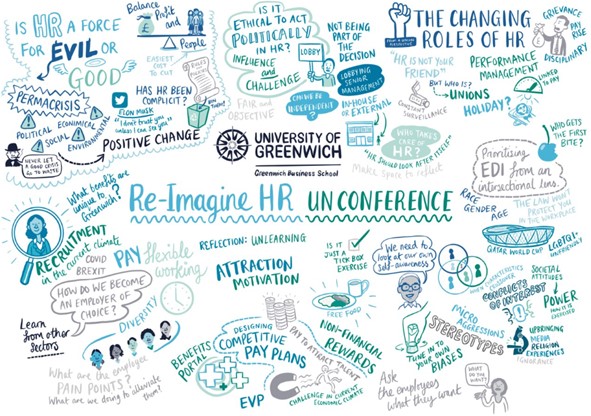 IS HR A FORCE
FOR EVIL OR
GOOD
Balance
Profit and
People
EASIEST
COST TO
CUT
HAS HR BEEN
COMPLICIT?
PERMACRISIS
POLITICAL
ECONOMICAL
SOCIAL
ENVIRONMENTAL
ELON MUSK
"I don't trust you
unless I can see you"
POSITIVE CHANGE
NEVER LET
A GOOD CRISIS
GO TO WASTE
IS IT
ETHICAL TO ACT
POLITICALLY
IN HR?
INFLUENCE
and
CHALLENGE
LOBBY
NOT BEING
PART OF
THE
DECISION
LOBBYING
SENIOR
MANAGEMENT
FAIR and
OBJECTIVE
CAN WE BE
INDEPENDENT?
IN-HOUSE
or EXTERNAL
WHO TAKES
CARE OF
HR?
"HR SHOULD LOOK AFTER ITSELF"
Make space to reflect
THE CHANGING
ROLES OF HR
"HR IS NOT YOUR
FRIEND"
BUT WHO IS?
UNIONS
CONSTANT
SURVEILLANCE
PERFORMANCE
MANAGEMENT
LINKED TO
MY
HOLIDAY?
GRIEVANCE
PAY
RISE
DISCIPLINARY
WHO GETS
THE FIRST
BITE?
Prioritising
EDI from an
intersectional lens.
RACE
GENDER
AGE
THE LAW WON'T
PROTECT YOU
IN THE WORKPLACE
QATAR WORLD CUP
LGBTQI-
UNFRIENDLY
UNIVERSITY of
GREENWICH
Greenwich Business School
Re-Imagine HR UNCONFERENCE
What benefits are
unique to
Greenwich?
RECRUITMENT
in the current climate
COVID
BREXIT
PAY
Flexible
working
HOW DO WE BECOME
AN EMPLOYER OF
CHOICE?
DIVERSITY
Learn
from other
sectors
What are the employee
PAIN POINTS?
What are we doing to alleviate
them?
REFLECTION: UNLEARNING
ATTRACTION
MOTIVATION
IS IT
JUST A
TICK BOX
EXERCISE
FREE FOOD
DESIGNING
COMPETITIVE
PAY PLANS
BENEFITS
PORTAL
EVP
PAY TO ATTRACT TALENT
NON-FINANCIAL
REWARDS
CHALLENGE IN CURRENT
ECONOMIC CLIMATE
We need to
look at our own
self-awareness
CONFLICTS
OF INTEREST
SOCIETAL
ATTITUDES
POWER
HOW IT IS
EXERCISED
MICRO
AGGRESSIONS
STEREOTYPES
TUNE IN TO
YOUR OWN
BIASES
UPBRINGING
MEDIA
RELIGION
EXPERIENCES
IGNORANCE
Ask
the employees
what they want
WHAT DO
YOU
WANT?